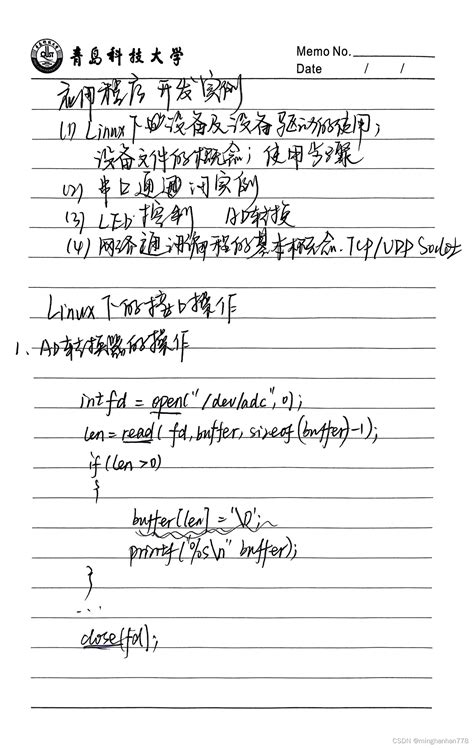 青岛科技大学
Memo No.
Date / /
应用程序开发实例
(1) Linux下的设备及设备驱动的使用;
设备文件的概念; 使用步骤
(2) 串口通讯实例
(3) LED控制 AD转换
(4) 网络通讯编程的基本概念. TCP/UDP Socket
Linux下的接口操作
1、AD转换器的操作
int fd = open("/dev/adc", 0);
len = read( fd, buffer, sizeof(buffer)-1);
if (len >0)
{
buffer[len] = '\0';
printf("%s\n" buffer);
}
...
close(fd);
CSDN @minghanhan778